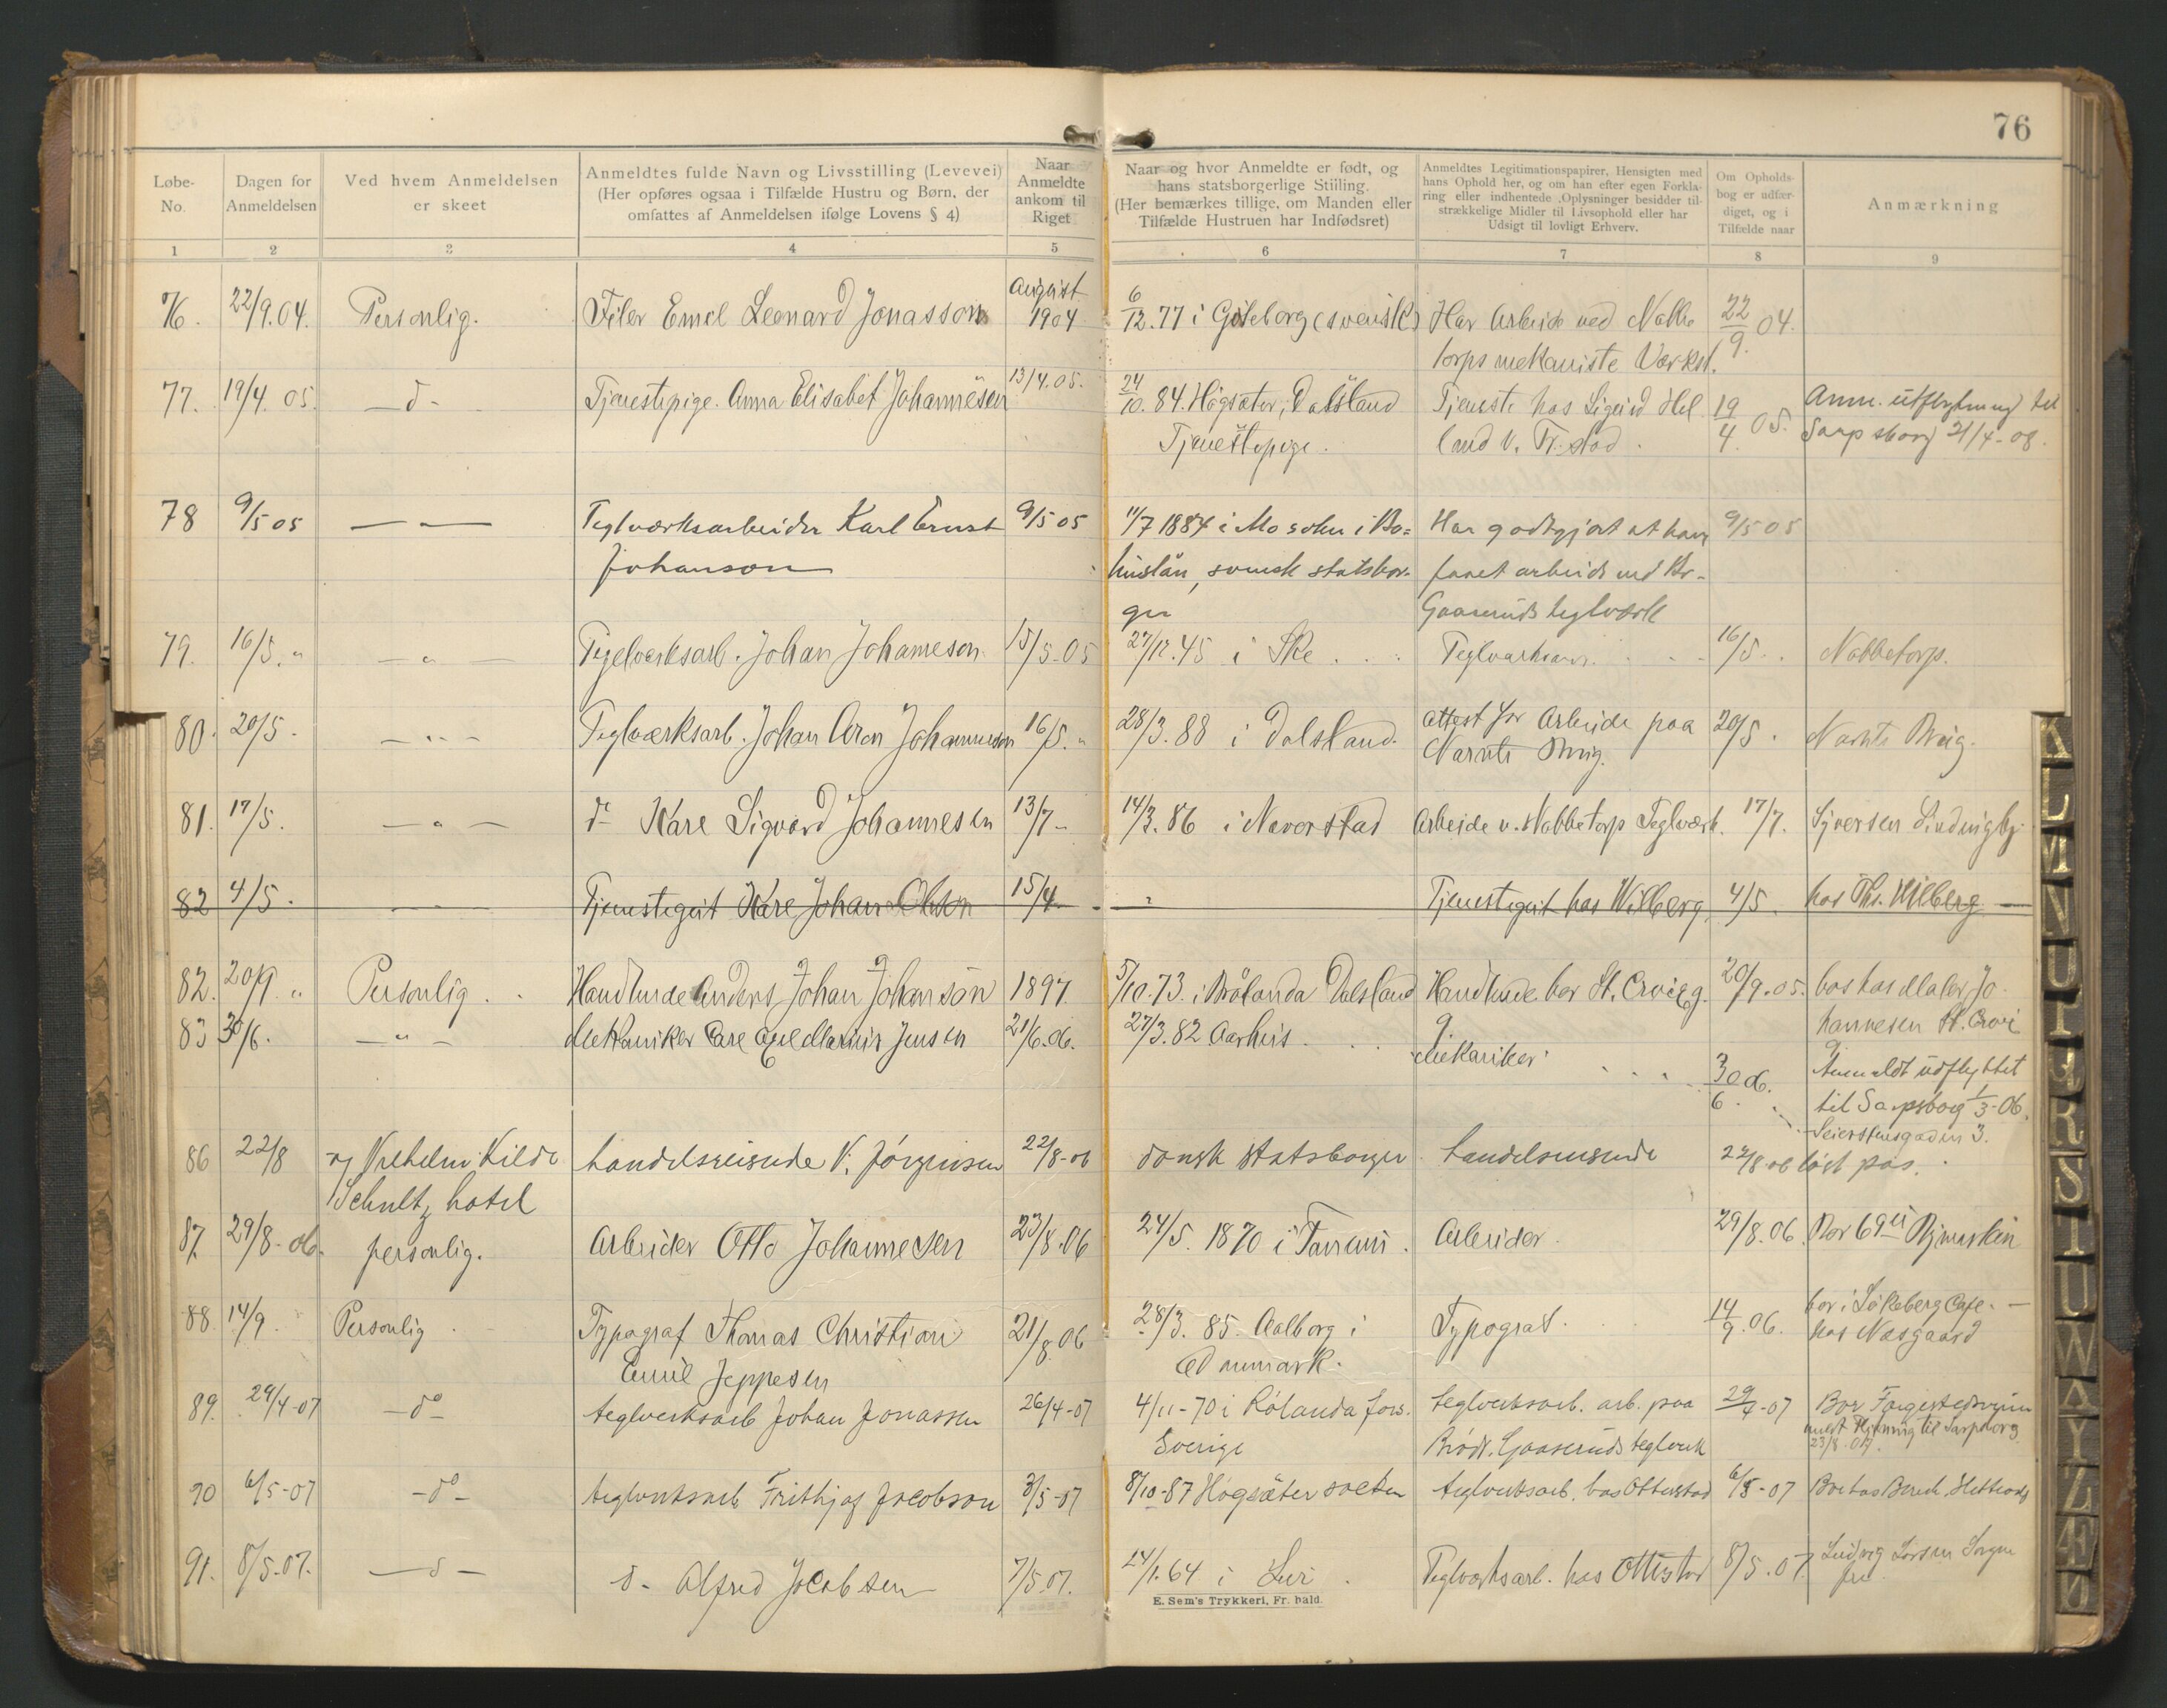 76
Løbe-
No.
Dagen for
Anmeldelsen
Ved hvem Anmeldelsen
er skeet
Anmeldtes fulde Navn og Livsstilling (Levevei)
(Her opføres ogsaa i Tilfælde Hustru og Børn, der
omfattes af Anmeldelsen ifølge Lovens § 4)
Naar
Anmeldte
ankom til
Riget
Naar og hvor Anmeldte er født, og
hans statsborgerlige Stilling.
(Her bemærkes tillige, om Manden eller
Tilfælde Hustruen har Indfødsret)
Anmeldtes Legitimationspapirer, Hensigten med
hans Ophold her, og om han efter egen Forkla-
ring eller indhentede Oplysninger besidder til-
strækkelige Midler til Livsophold eller har
Udsigt til lovligt Erhverv.
Om Opholds-
bog er udfær-
diget, og i
Tilfælde naar
Anmærkning
1 2 3 4 5 6 7 8 9
76. 22/9.04. Personlig. Filer Emil Leonard Jonasson August 1904 6/12.77 i Göteborg (svensk) Har Arbeide ved Nabbe 22/9 04.
torps mekaniste Værkst.
77. 19/4 05. —d— Tjenestepige Anna Elisabet Johannesen 13/4.05. 24/10.84. Högsäter, Dalsland Tjeneste hos Sigurd Hel 19/4 05. Anm. utflytning til
Tjenestepige. land v. Fr.stad. Sarpsborg 21/4-08.
78 9/5 05 — — Teglværksarbeider Karl Ernst 9/5 05 11/7 1884 i Mo sokn i Bo= Har godtgjort at have 9/5 05
Johanson huslän, svensk statsbor- faaet arbeide ved Br-
ger Gaaseruds teglværk
79. 16/5. " — " — Tegelværksarb. Johan Johanneson. 15/5.05 27/12.45 i Ske Teglværksarb. 16/5. Nabbetorp.
80. 20/5. — " — Teglværksarb. Johan Aron Johannesson 16/5. " 28/3.88 i Dalsland. Attest for Arbeide paa 20/5.
81. 17/5. — " — d— Kare Sigvard Johannesen 13/7- 14/3.86 i Naverstad Arbeide v. Nabbetorp Teglværk. 17/7.
82 4/5. — Tjenestegut Kare Johan Olsen 15/4 — " Tjenestegut hos Wilberg. 4/5. hos Ths. Wilberg
82. 20/9. " Personlig. Handlende Anders Johan Johanson 1897. 5/10.73. i Brålanda Dalsland Handlende bor St. Croix g. 20/9.05. hos handlaler Jo-
hannesen St. Croix
g.
83 30/6. — " — Mekaniker Care Axel Marius Jensen 21/6.06. 27/3.82 Aarhus. Mekaniker 30/6 06. Anmeldt udflyttet
til Sarpsborg 1/3-06.
86 22/8 v/ Vilhelm Kilde handelsreisende V. Jörgensen 22/8-06 dansk statsborger handelsreisende 22/8-06 löst pas.
Schultz hotel
87. 29/8-06. personlig. Arbeider Otto Johannesen 23/8.06 24/5. 1870 i Tanum. Arbeider. 29/8.06.
88. 14/9. Personlig Typograf Thomas Christian 21/8 06 28/3. 85. Aalborg i Typograf. 14/9.06. bor i Lökeberg Cafe. —
Emil Jeppesen Danmark. hos Næsgaard
89. 29/4-07 —do— teglverksarb Johan Jonassen 26/4-07 4/11-70 i Rölanda fors. teglverksarb. arb. paa 29/4-07
Sverige Brödr. Gaaseruds teglverk
23/8.07.
90 6/5-07 —do— teglverksarb Frithjof Jacobson 3/5-07 8/10-87 Högsäter socken teglverksarb. hos Ottestad 6/5-07
91. 8/5-07. —d— d— Alfred Jacobsen 7/5 07. 14/1.64 i Lur. Teglværksarb. hos Ottestad 8/5.07
E. Sem's Trykkeri, Fr. hald.
K
L
M
N
U
R
S
T
U
W
A
Y
Z
Æ
Ø